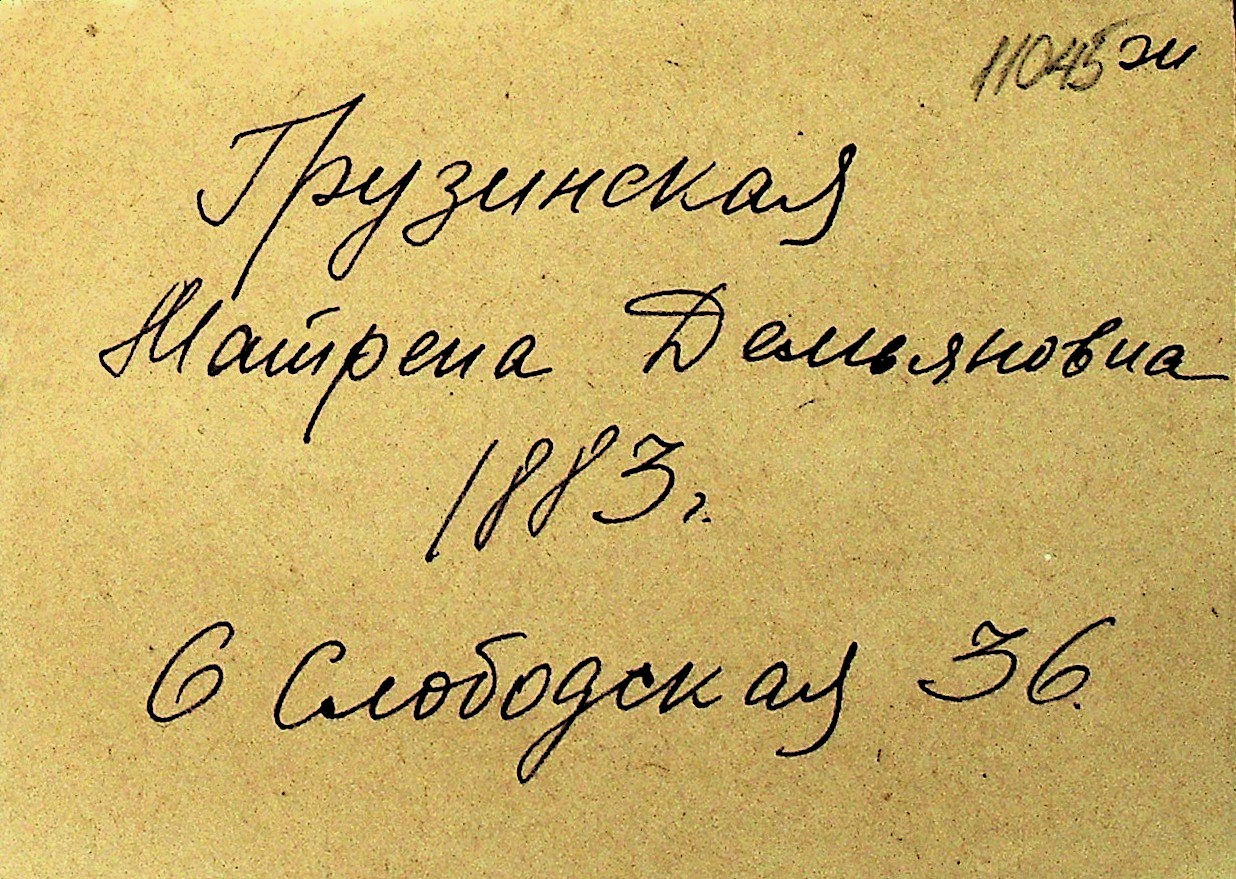 11045 жи
Грузинская
Матрена Демьяновна
1883 г.
6 Слободская 36